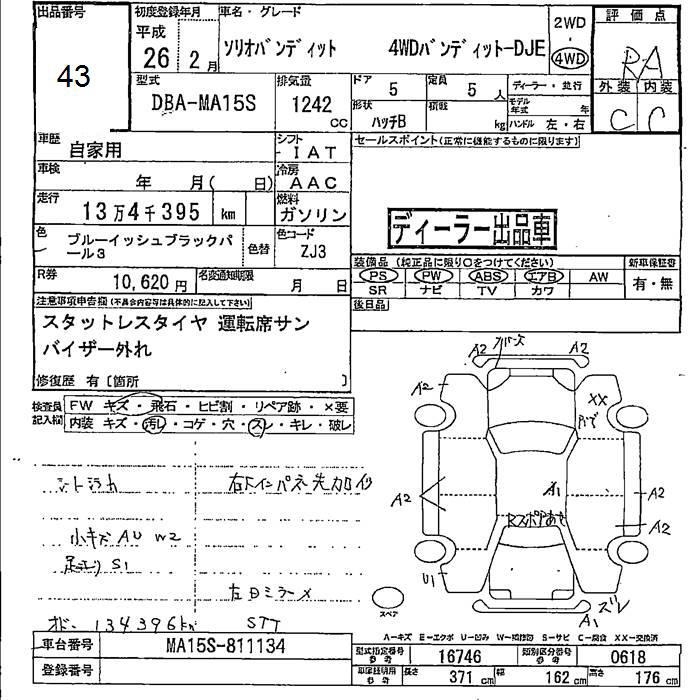 出品番号 初度登録年月 車名・グレード 2WD 評価点
43 平成 26 2月 ソリオバンディット 4WDバンディット-DJE ・ 4WD RA
型式 DBA-MA15S 排気量 1242 CC ドア 5 定員 5人 ディーラー・並行 外装 内装
形状 ハッチB 積載 kg モデル年式 年 ハンドル 左・右 C C
車歴 自家用 シフト IAT セールスポイント(正常に機能するものに限ります)
車検 年 月( 日) 冷房 AAC
走行 13万4千395 km 燃料 ガソリン
ディーラー出品車
色 ブルーイッシュブラックパール3 色替 色コード ZJ3
装備品 (純正品に限り○をつけてください) 新車保証書
R券 10,620円 名変通知期限 月 日 PS PW ABS エアB AW 有・無
SR ナビ TV カワ
注意事項申告欄(不具合内容等は具体的に記入して下さい) 後日品
スタットレスタイヤ 運転席サン
バイザー外れ
修復歴 有〔箇所 〕
検査員記入欄 FW キズ・飛石・ヒビ割・リペア跡・×要
内装 キズ・汚レ・コゲ・穴・スレ・キレ・破レ
A2 A2
A2 XX
A2 A1 A2
A2
U1
スペア A1 ズレ
小キズ AU W2
S1
左Dミラーメ
134396km STT
A-キズ E-エクボ U-凹み W-補修跡 S-サビ C-腐食 XX-交換済
車台番号 MA15S-811134 型式指定番号 参考 16746 類別区分番号 参考 0618
登録番号 車庫証明用 参考 長さ 371cm 幅 162cm 高さ 176cm